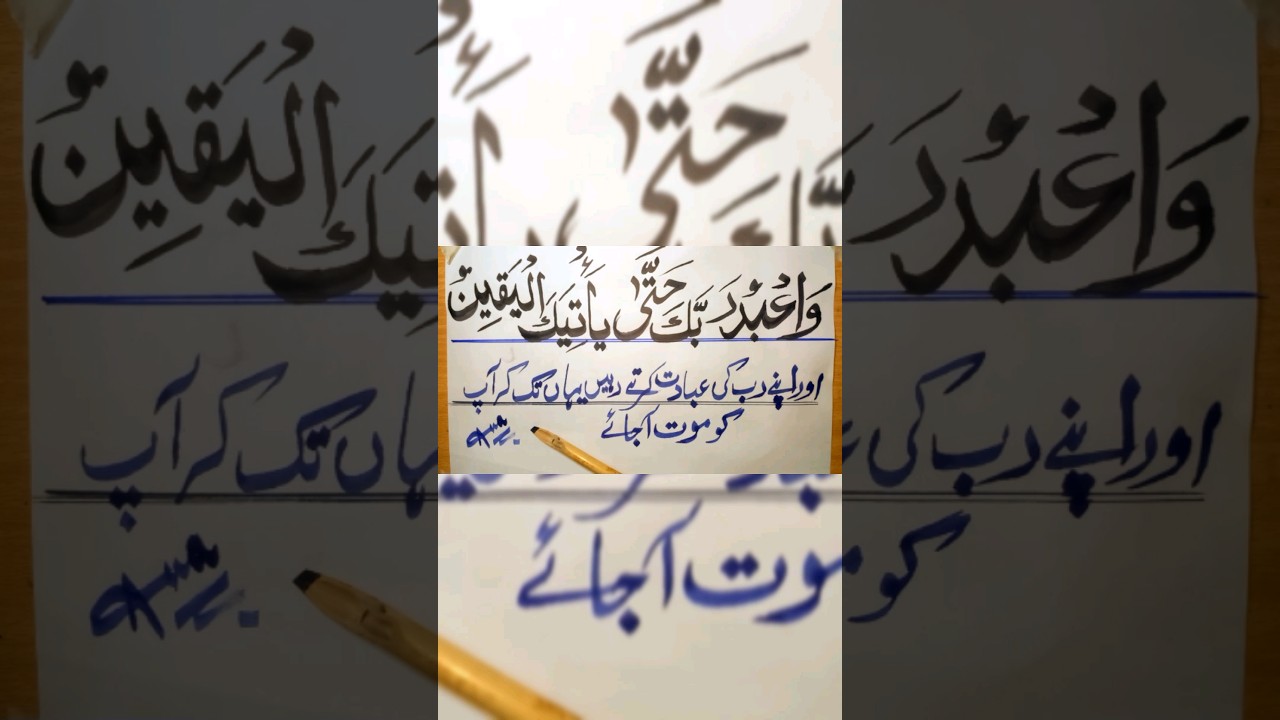 وَاعْبُدْ رَبَّكَ حَتَّىٰ يَأْتِيَكَ الْيَقِينُ
اور اپنے رب کی عبادت کرتے رہیں یہاں تک کہ آپ
کو موت آجائے